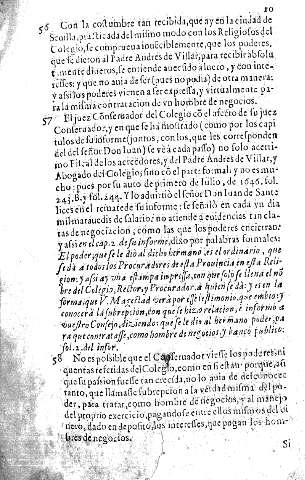 10
56 Con la costumbre tan recibida, que ay en la ciudad de
Seuilla, practicada del mismo modo con los Religiosos del
Colegio, se comprueua inuēciblemente, que los poderes,
que se dieron al Padre Andrés de Villar, para recibir absolu
tamente dineros, se entiende auer sido a luero, y con inte-
resses: y que no auia de ser (pues no podia) de otra manera:
y assi los poderes vienen a ser expressa, y virtualmente pa-
ra la misma contratacion de vn hombre de negocios.
57 El juez Conseruador del Colegio cō el afecto de su juez
Conseruador, y en que se ha mostrado (como por los capi
tulos de su informe, juntos, con los, que les corresponden
del del señor Don Iuan) se verà cada passo) no solo acerri-
mo Fiscal de los acreedores, y del Padre Andrés de Villar, y
Abogado del Colegio, sino cō el parte formal, y no es mu-
cho; pues por su auto de primero de Iulio, de 1646. fol.
243. B. y fol. 244. Y lo aduirtiò el señor Don Iuan de Sante
lices en el remate de su informe: se señalò en cada vn dia
mil marauedis de salario: no atiende a euidencias tan cla-
ras de negociacion, como las que los poderes encierran:
y assi en el cap. 2. de su informe, dixo por palabras formales:
El poder, que se le diò al dicho hermano, es el ordinario, que
se dà a todos los Procuradores de esta Prouincia en esta Reli-
gion: y assi ay vna estampa impressa, con que solo se llena el nō
bre del Colegio, Rector, y Procurador, a quien se dà: y es en la
forma, que V. Magestad verà por este testimonio, que embio: y
conocerà la subrepcion, con que se hizo relacion, è informò a
vuestro Consejo, diziendo: que se le diò al hermano poder, pa-
ra que contratasse, como hombre de negocios, y banco publico:
fol. 2. del infor.
58 No es possible que el Conseruador viesse los poderes in
quentas referidas del Colegio, como en si estàn: porque, assi
que su passion fuesse tan crecida, no lo auia de desconocer
tanto, que llamasse subrepcion a la verdad misma del po-
der, para tratar, como hombre de negocios, y al manejo
del proprio exercicio, pagandose entre ellos mismos del di
nero, dado en deposito, los interesses, que pagan los hom-
bres de negocios.
Si